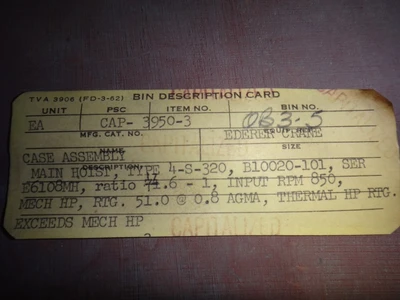 TVA 3906 (FD-3-62) BIN DESCRIPTION CARD
UNIT PSC ITEM NO. BIN NO.
EA CAP- 3950-3 OB3-5
MFG. CAT. NO. EDERER CRANE
NAME SIZE
CASE ASSEMBLY
DESCRIPTION
MAIN HOIST, TYPE 4-S-320, B10020-101, SER
E6108MH, ratio 17.6 - 1, INPUT RPM 850,
MECH HP, RTG. 51.0 @ 0.8 AGMA, THERMAL HP RTG.
EXCEEDS MECH HP
CAPITALIZED